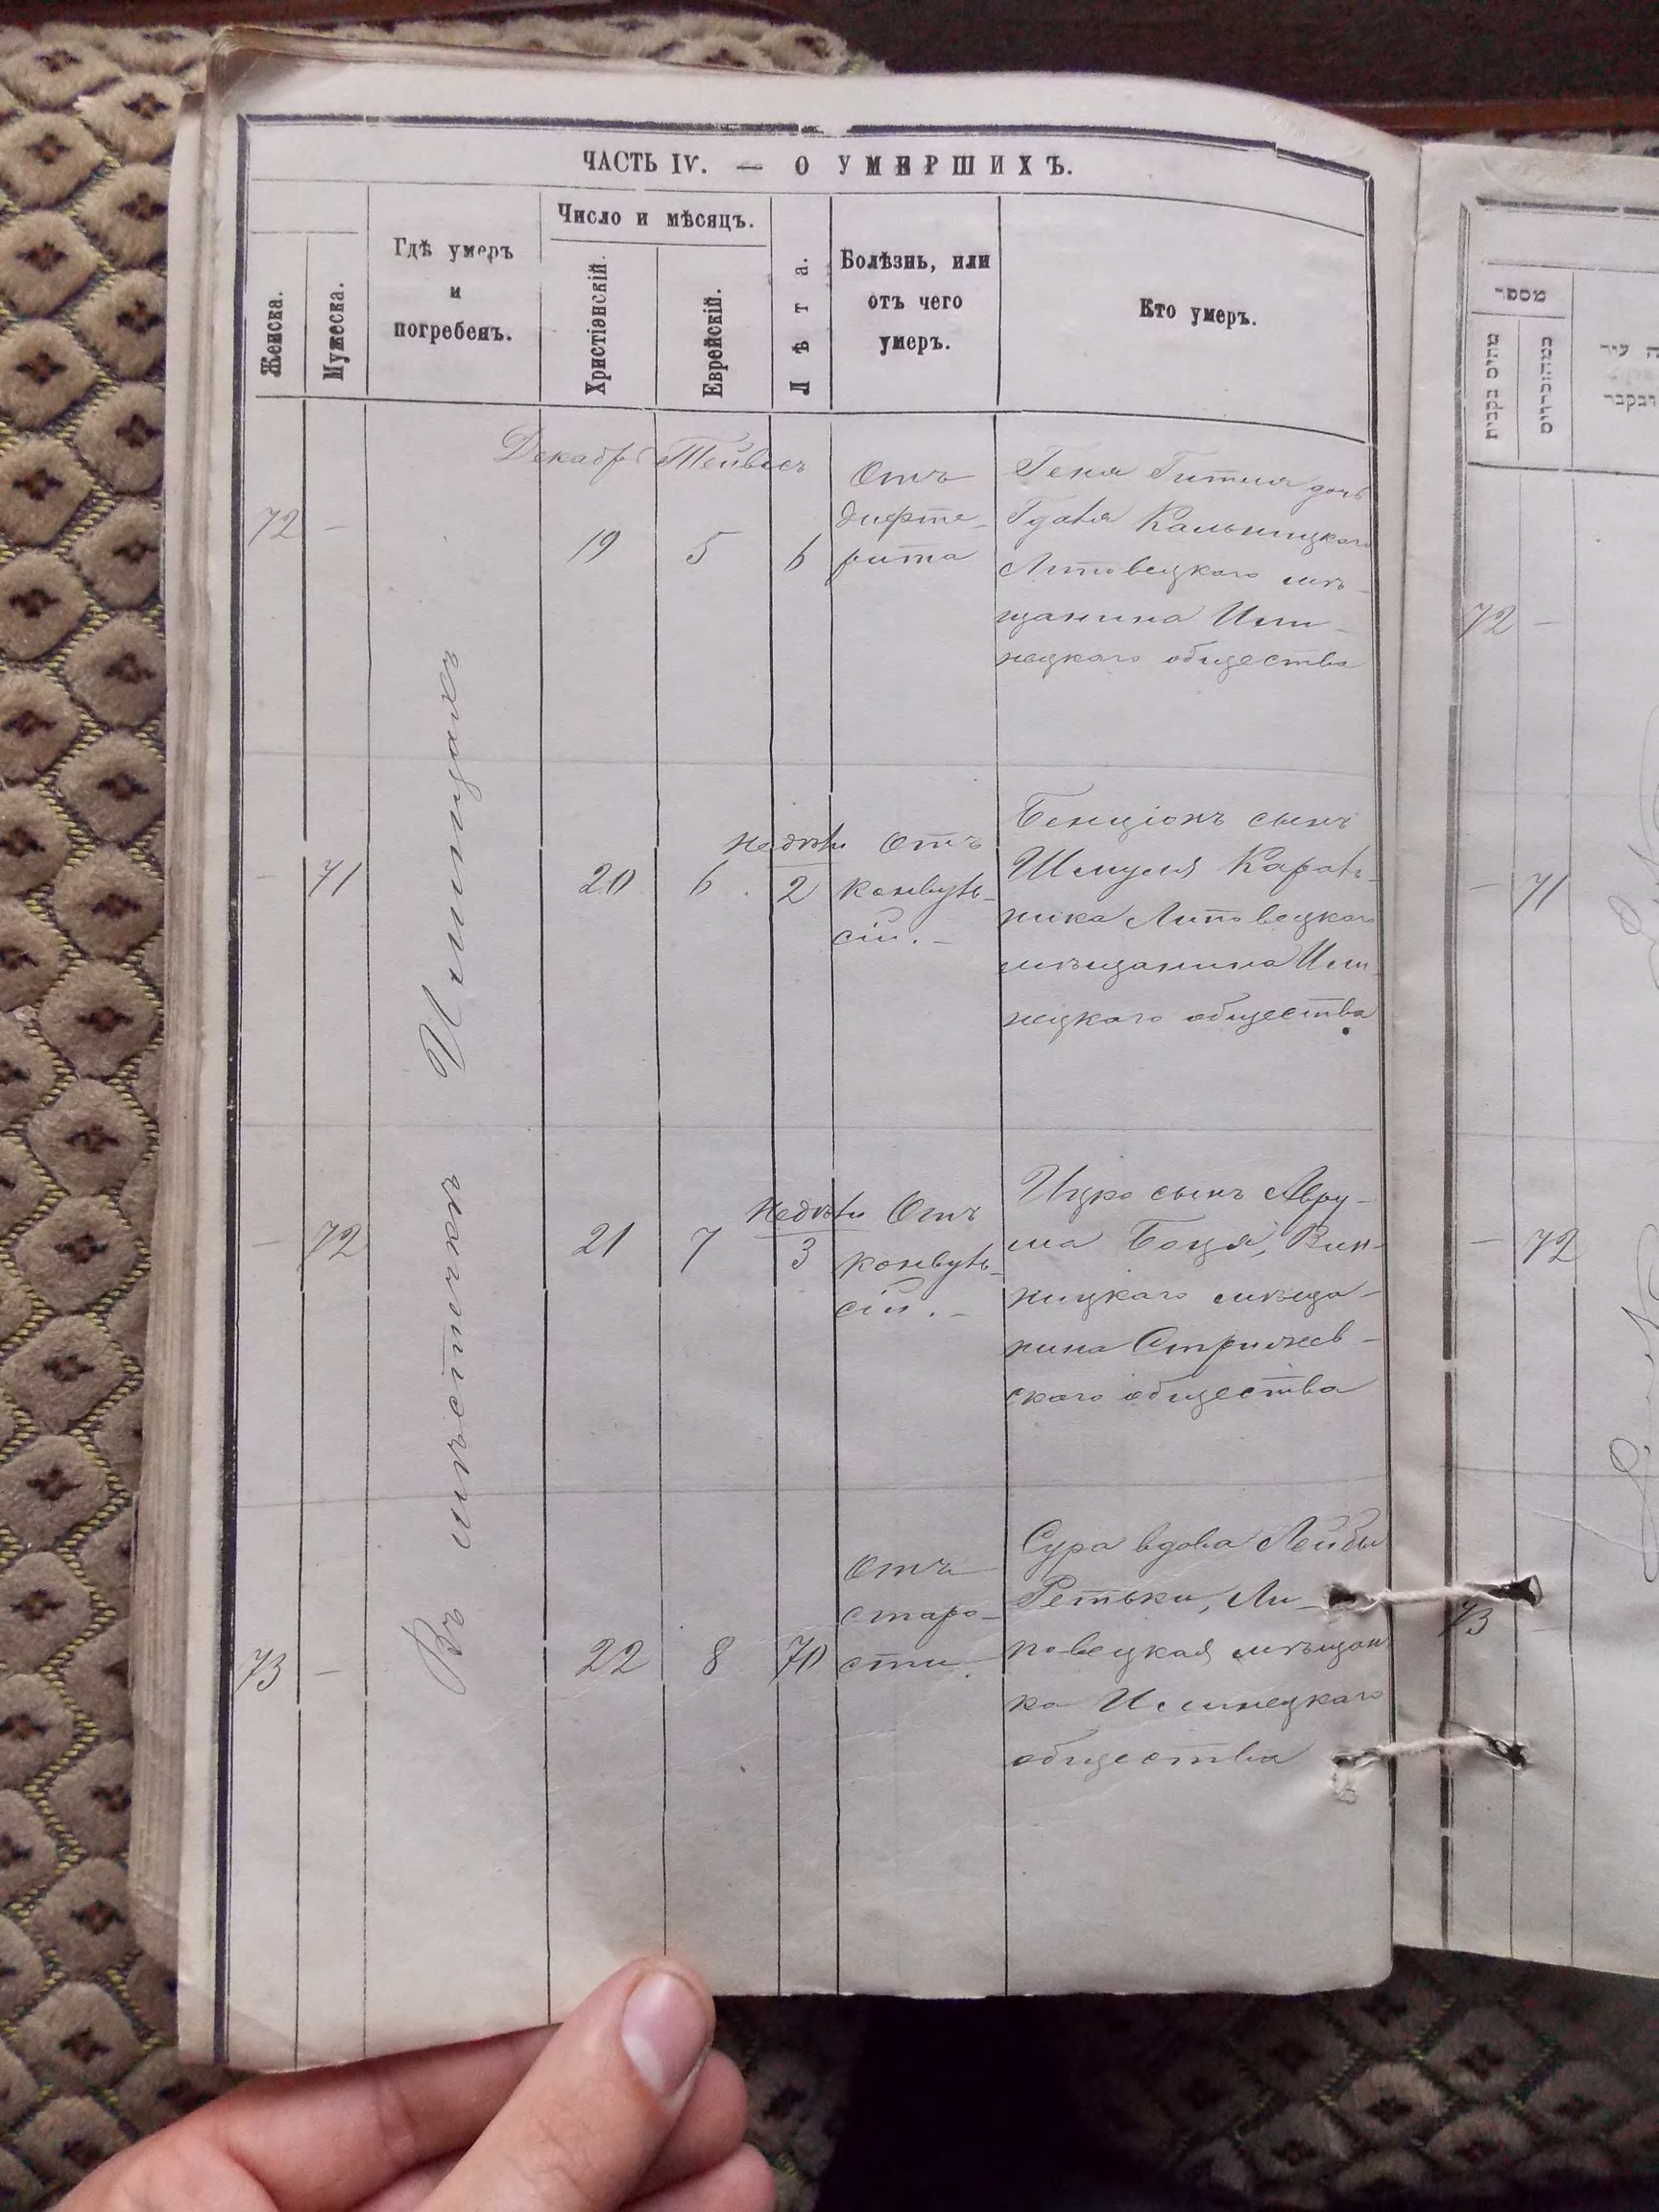 ЧАСТЬ IV. — О УМЕРШИХЪ.
Женска.
Мужеска.
Гдѣ умеръ
и
погребенъ.
Число и мѣсяцъ.
Христіанскій.
Еврейскій.
Лѣта.
Болѣзнь, или
отъ чего
умеръ.
Кто умеръ.
Въ мѣстечкѣ Илинцахъ
Декабрь Тейвесъ
72 —
19 5 6
Отъ
дифте-
рита
Геня Гитля дочь
Калницкаго
Липовецкаго мѣ-
щанина Или-
нецкаго общества
— 71
20 6
недѣли
2
Отъ
конвуль-
сіи. —
Бенціонъ сынъ
Шмуля Караль-
ника Липовецкаго
мѣщанина Или-
нецкаго общества
— 72
21 7
недѣли
3
Отъ
конвуль-
сіи. —
Ицко сынъ Авру-
ма Боця, Вин-
ницкаго мѣща-
нина Стрижев-
скаго общества
73 —
22 8 70
Отъ
старо-
сти.
Сура вдова Лейбы
Ретьки, Ли-
повецкая мѣщан
ка Илинецкаго
общества
מספר
72 —
— 71
— 72
73